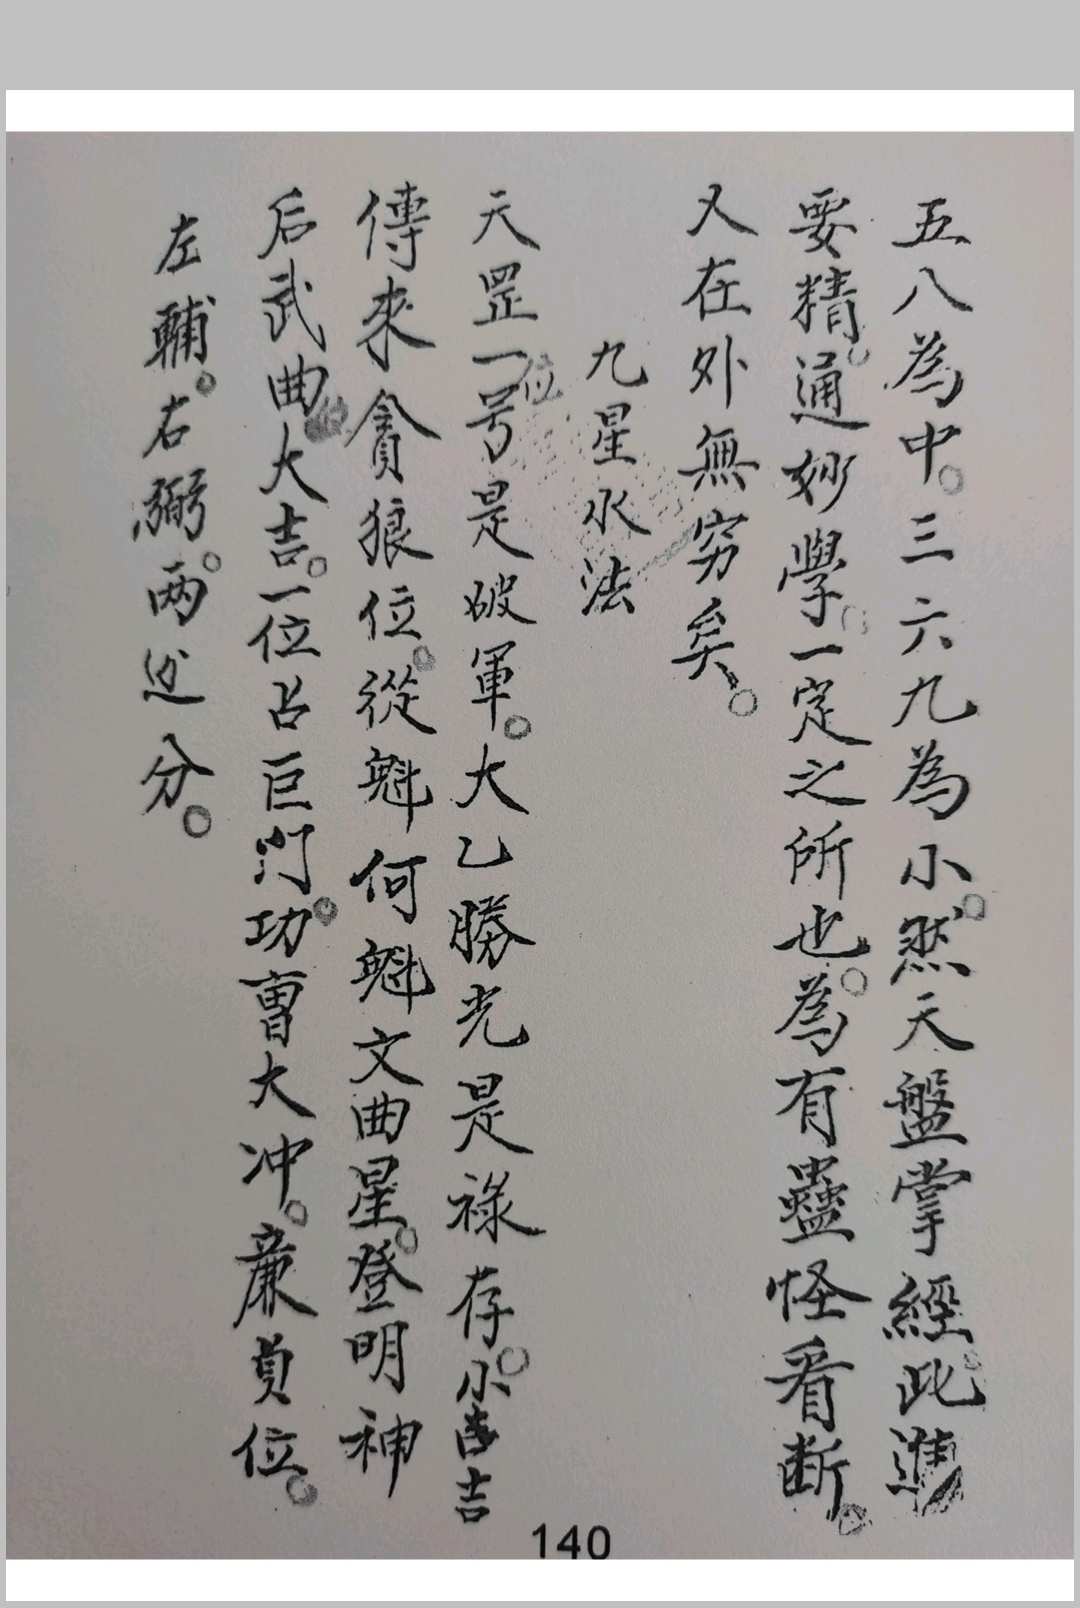 五八為中。三六九為小。然天盤掌經。此進
要精。通妙學。一定之所也。為有蠱怪看断。
又在外無穷矣。
九星水法
天罡一位号是破軍。大乙勝光是祿存。小吉
傳來貪狼位。從魁何魁文曲星。登明神
后武曲大吉。一位占巨门。功曹大冲。廉貞位。
左輔。右弼。两边分。
140